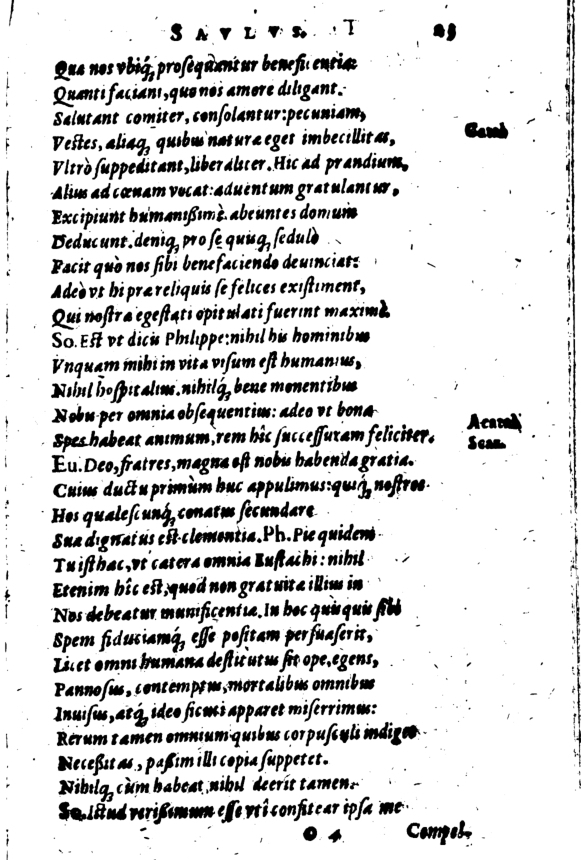 SAVLVS. I 25
Qua nos vbiq́; proſequantur beneficentia:
Quanti faciant, quo nos amore diligant.
Salutant comiter, conſolantur: pecuniam,
Veſtes, aliaq́; quibus natura eget imbecillitas,
Vltrò ſuppeditant, liberaliter. Hic ad prandium,
Alius ad cœnam vocat: aduentum gratulantur,
Excipiunt humanißimè. abeuntes domum
Deducunt. deniq́; pro ſe quiuq́; ſedulò
Facit quò nos ſibi benefaciendo deuinciat:
Adeò vt hi præ reliquis ſe felices exiſtiment,
Qui noſtra egeſtati opitulati fuerint maximè.
So. Eſt vt dicis Philippe: nihil his hominibus
Vnquam mihi in vita viſum eſt humanius,
Nihil hoſpitalius. nihilq́; bene monentibus
Nobis per omnia obſequentius: adeo vt bona
Spes habeat animum, rem hîc ſucceſſuram feliciter.
Eu. Deo, fratres, magna eſt nobis habenda gratia.
Cuius ductu primùm huc appulimus: quiq́; noſtros
Hos qualeſcunq́; conatus ſecundare
Sua dignatus eſt clementia. Ph. Pie quidem
Tu iſthac, vt cætera omnia Euſtachi: nihil
Etenim hîc eſt, quod non gratuita illius in
Nos debeatur munificentia. In hoc quiſquis ſibi
Spem fiduciamq́; eſſe poſitam perſuaſerit,
Licet omni humana deſtitutus ſit ope, egens,
Pannoſus, contemptus, mortalibus omnibus
Inuiſus, atq́; ideo ſicuti apparet miſerrimus:
Rerum tamen omnium quibus corpuſculi indiget
Neceßitas, paßim illi copia ſuppetet.
Nihilq́; cùm habeat, nihil deerit tamen.
So. Iſtud verißimum eſſe vti confitear ipſa me
O 4 Compel-